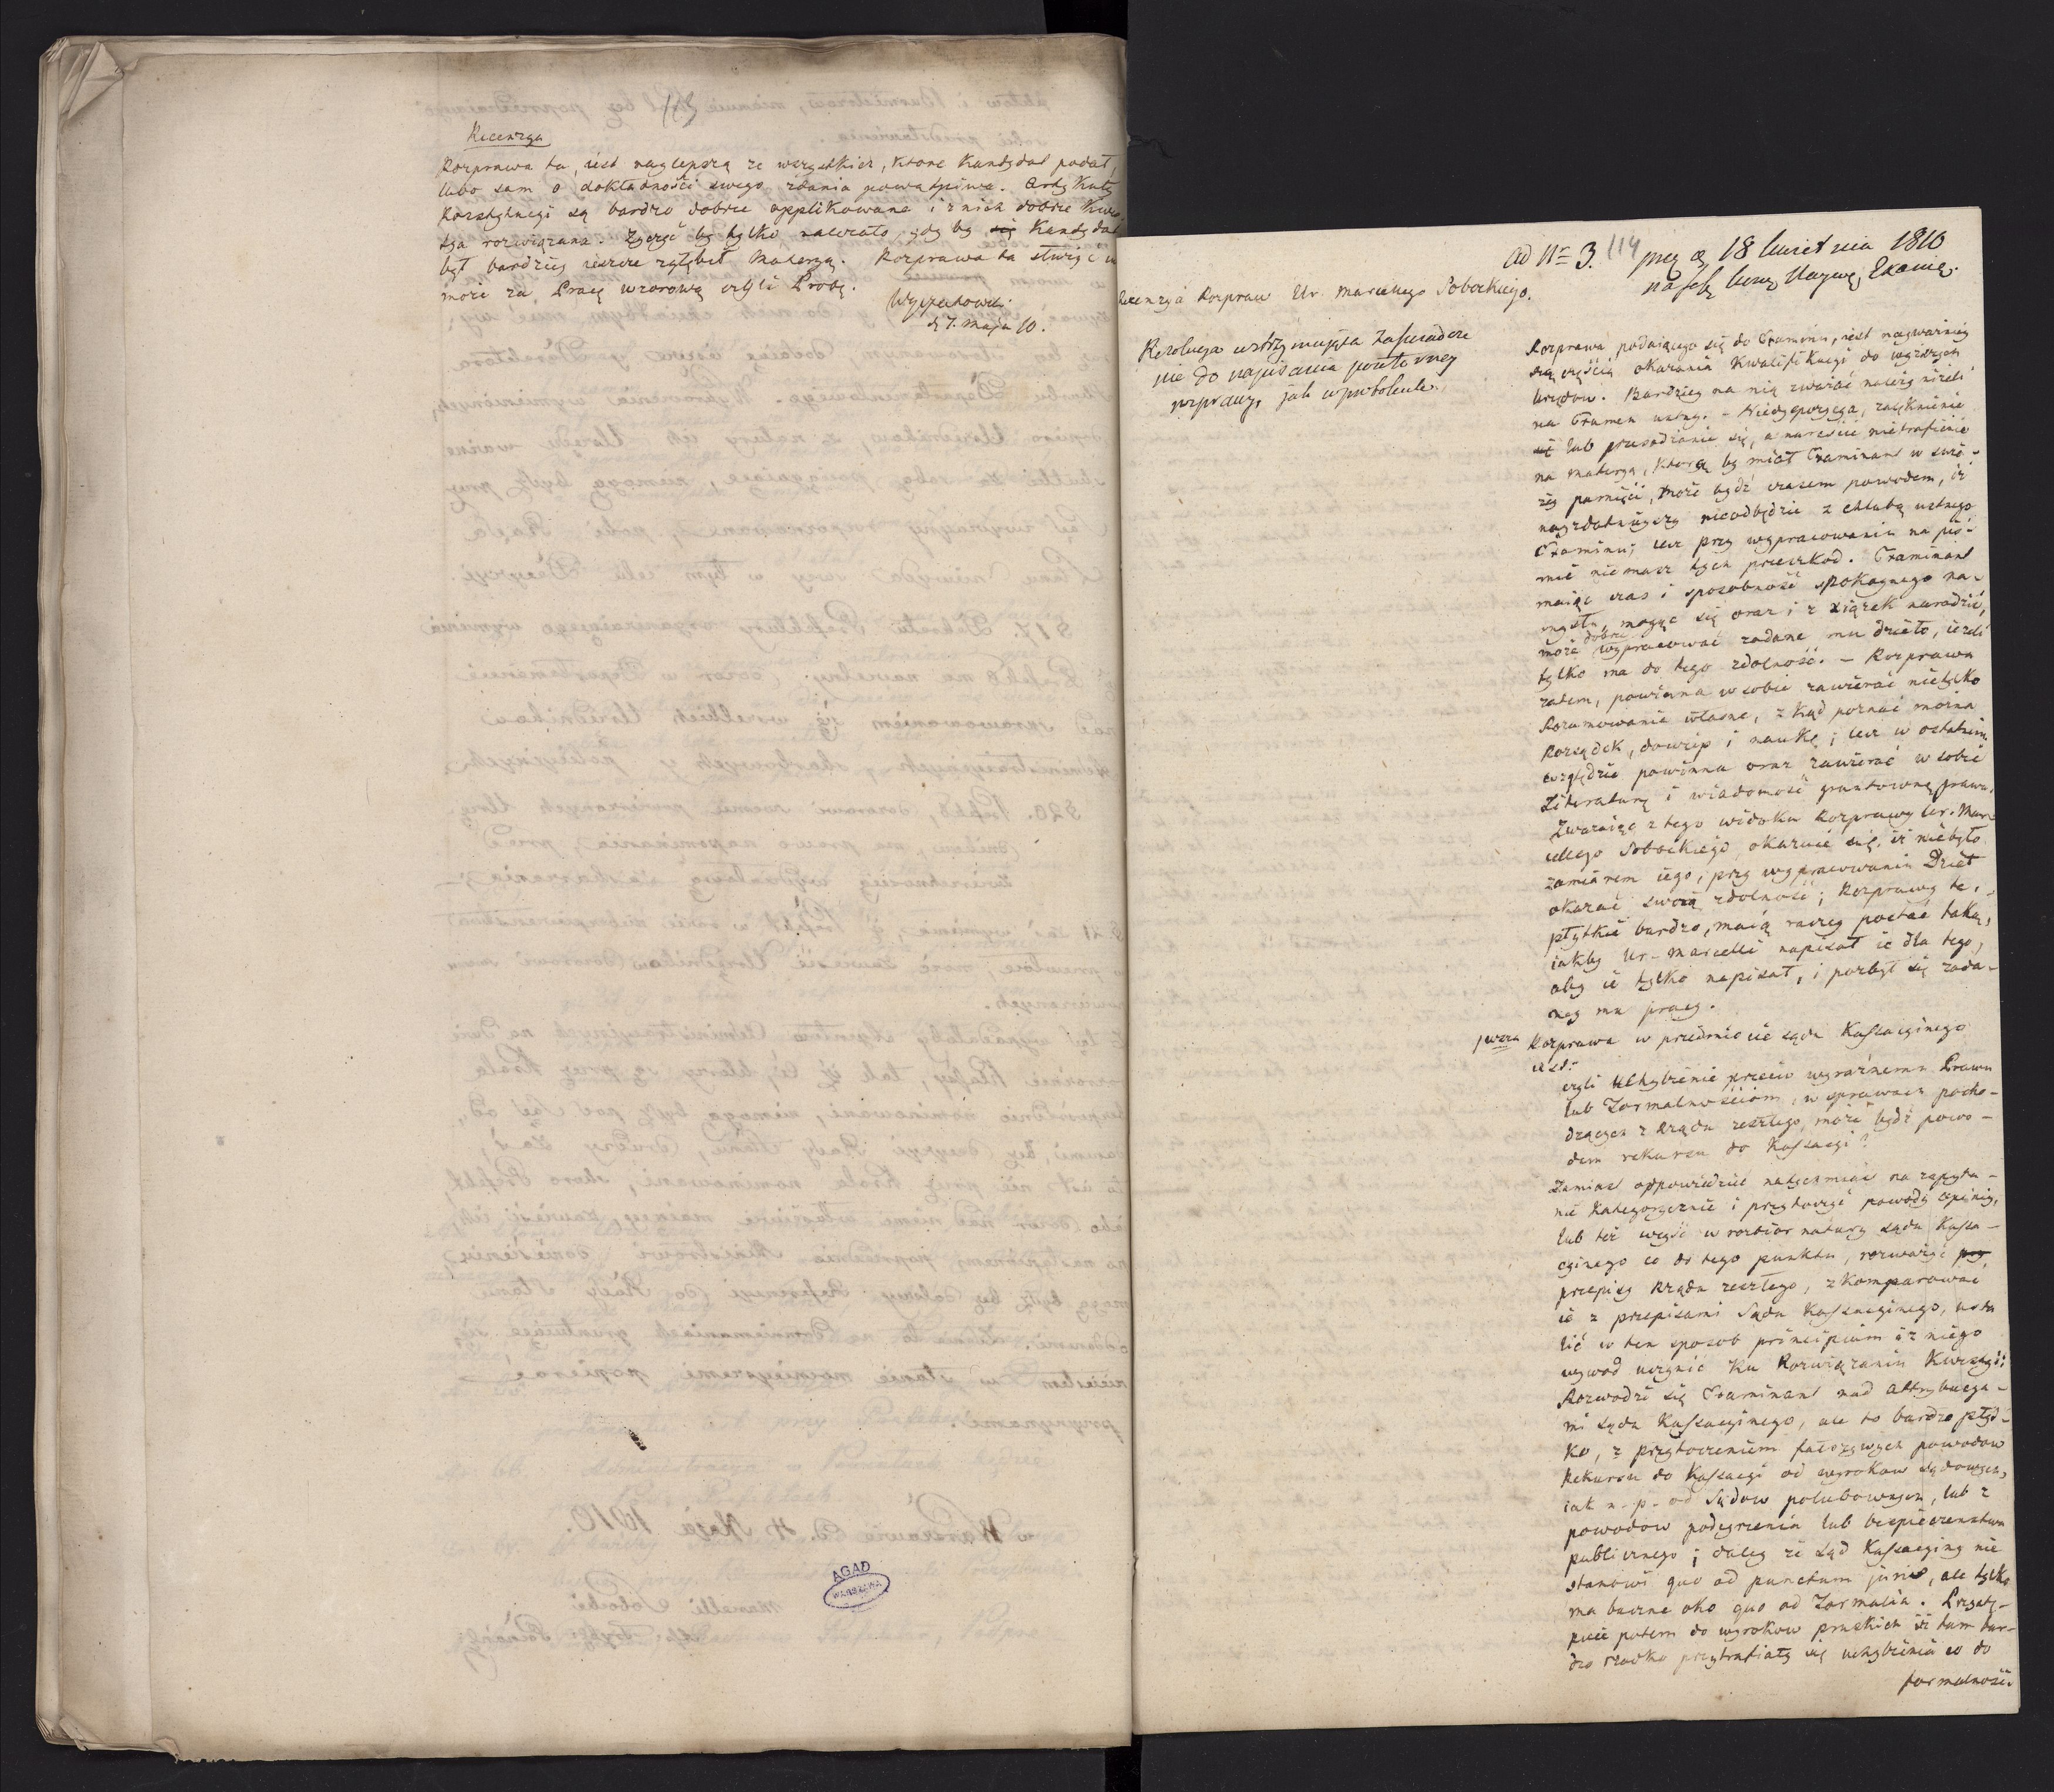 113
Recenzya
Rozprawa ta, iest naylepszą ze wszystkich, ktore Kandydat podał,
lubo sam o dokładności swego zdania powątpiwa. Artykuły
są bardzo dobrze applikowane i z nich dobrze Kwe-
stya rozwiązana. Zyczyć by tylko należało, gdy by się Kandydat
był bardziey ieszcze zgłębił Materyą. Rozprawa ta służyć
może za Pracę wzorową czyli Probę.
Wyczechowski
d 7. Maja 10.
AGAD
WARSZAWA
ad Nr 3. 114 18 kwietnia 1810
na Exami.
Recenzya Rozpraw Ur. Marcellego Sobockiego.
Rezolucya wstrzymująca
nie do napisania powtorney
rozprawy, jak w protokule.
Rozprawa podaiącego się do Examinu, iest nayważniey
szą częścią okazania Kwalifikacyi do wyższych
Urzędow. Bardziey na nią zważać należy niżeli
na Examen ustny. - Niedyspozycya, zalęknienie
się lub przesadzenie się, a nareście nietrafienie
na materyą, ktorą by miał Examinant w świe-
żey pamięci, może bydź czasem powodem, iż
nayzdatnieyszy nieodbędzie z chlubą ustnego
Examinu; lecz przy wypracowaniu na piś-
mie niemasz tych przeszkod. Examinant
maiąc czas i sposobność spokoynego na-
mysłu, mogąc się oraz i z xiążek naradzić,
może dobrze wypracować zadane mu dzieło, ieżeli
tylko ma do tego zdolność. - Rozprawa
zatem, powinna w sobie zawierać nietylko
Rozumowanie własne, z kąd poznać można
Rozsądek, dowcip i naukę; lecz w ostatnim
względzie powinna oraz zawierać w sobie
Literaturę i wiadomość gruntowną prawa.
Zważaiąc z tego widoku Rozprawy Ur. Mar-
cellego Sobockiego, okazuie się, iż niebyło
zamiarem iego, przy wypracowaniu Dzieł
okazać swoią zdolność; Rozprawy te,
płytkie bardzo, maią raczey postać taką,
iakby Ur. Marcelli napisał ie dla tego,
aby ie tylko napisał, i pozbył się zada-
ney mu pracy.
1wsza Rozprawa w przedmiocie Sądu Kassacyinego
iest:
czyli uchybienie przeciw wyraźnemu Prawu
lub Formalnościom, w sprawach pocho-
dzących z Rządu zeszłego, może bydź powo-
dem rekursu do Kassacyi?
Zamiast odpowiedzieć natychmiast na zapyta-
nie Kategorycznie i przytoczyć powody opinii,
lub też weyść w rozbior natury Sądu Kassa-
cyinego co do tego punktu, rozważyć
przepisy Rządu zeszłego, zkomparować
ie z przepisami Sądu Kassacyinego, usta
lić w ten sposob principium i z niego
wywod uczynić ku Rozwiązaniu Kwestyi;
Rozwodzi się Examinant nad Attrybucya-
mi Sądu Kassacyinego, ale to bardzo płyt-
ko, z przytoczeniem fałszywych powodow
Rekursu do Kassacyi od wyrokow sądowych,
iak n. p. od Sądow polubownych, lub z
powodow podeyrzenia lub bezpieczenstwa
publicznego; daley że Sąd Kassacyiny nie
stanowi quo ad punctum juris, ale tylko
ma baczne oko quo ad Formalia. Przystę-
puie potem do wyrokow pruskich iż tam bar-
dzo rzadko przytrafiały się uchybienia co do
formalności